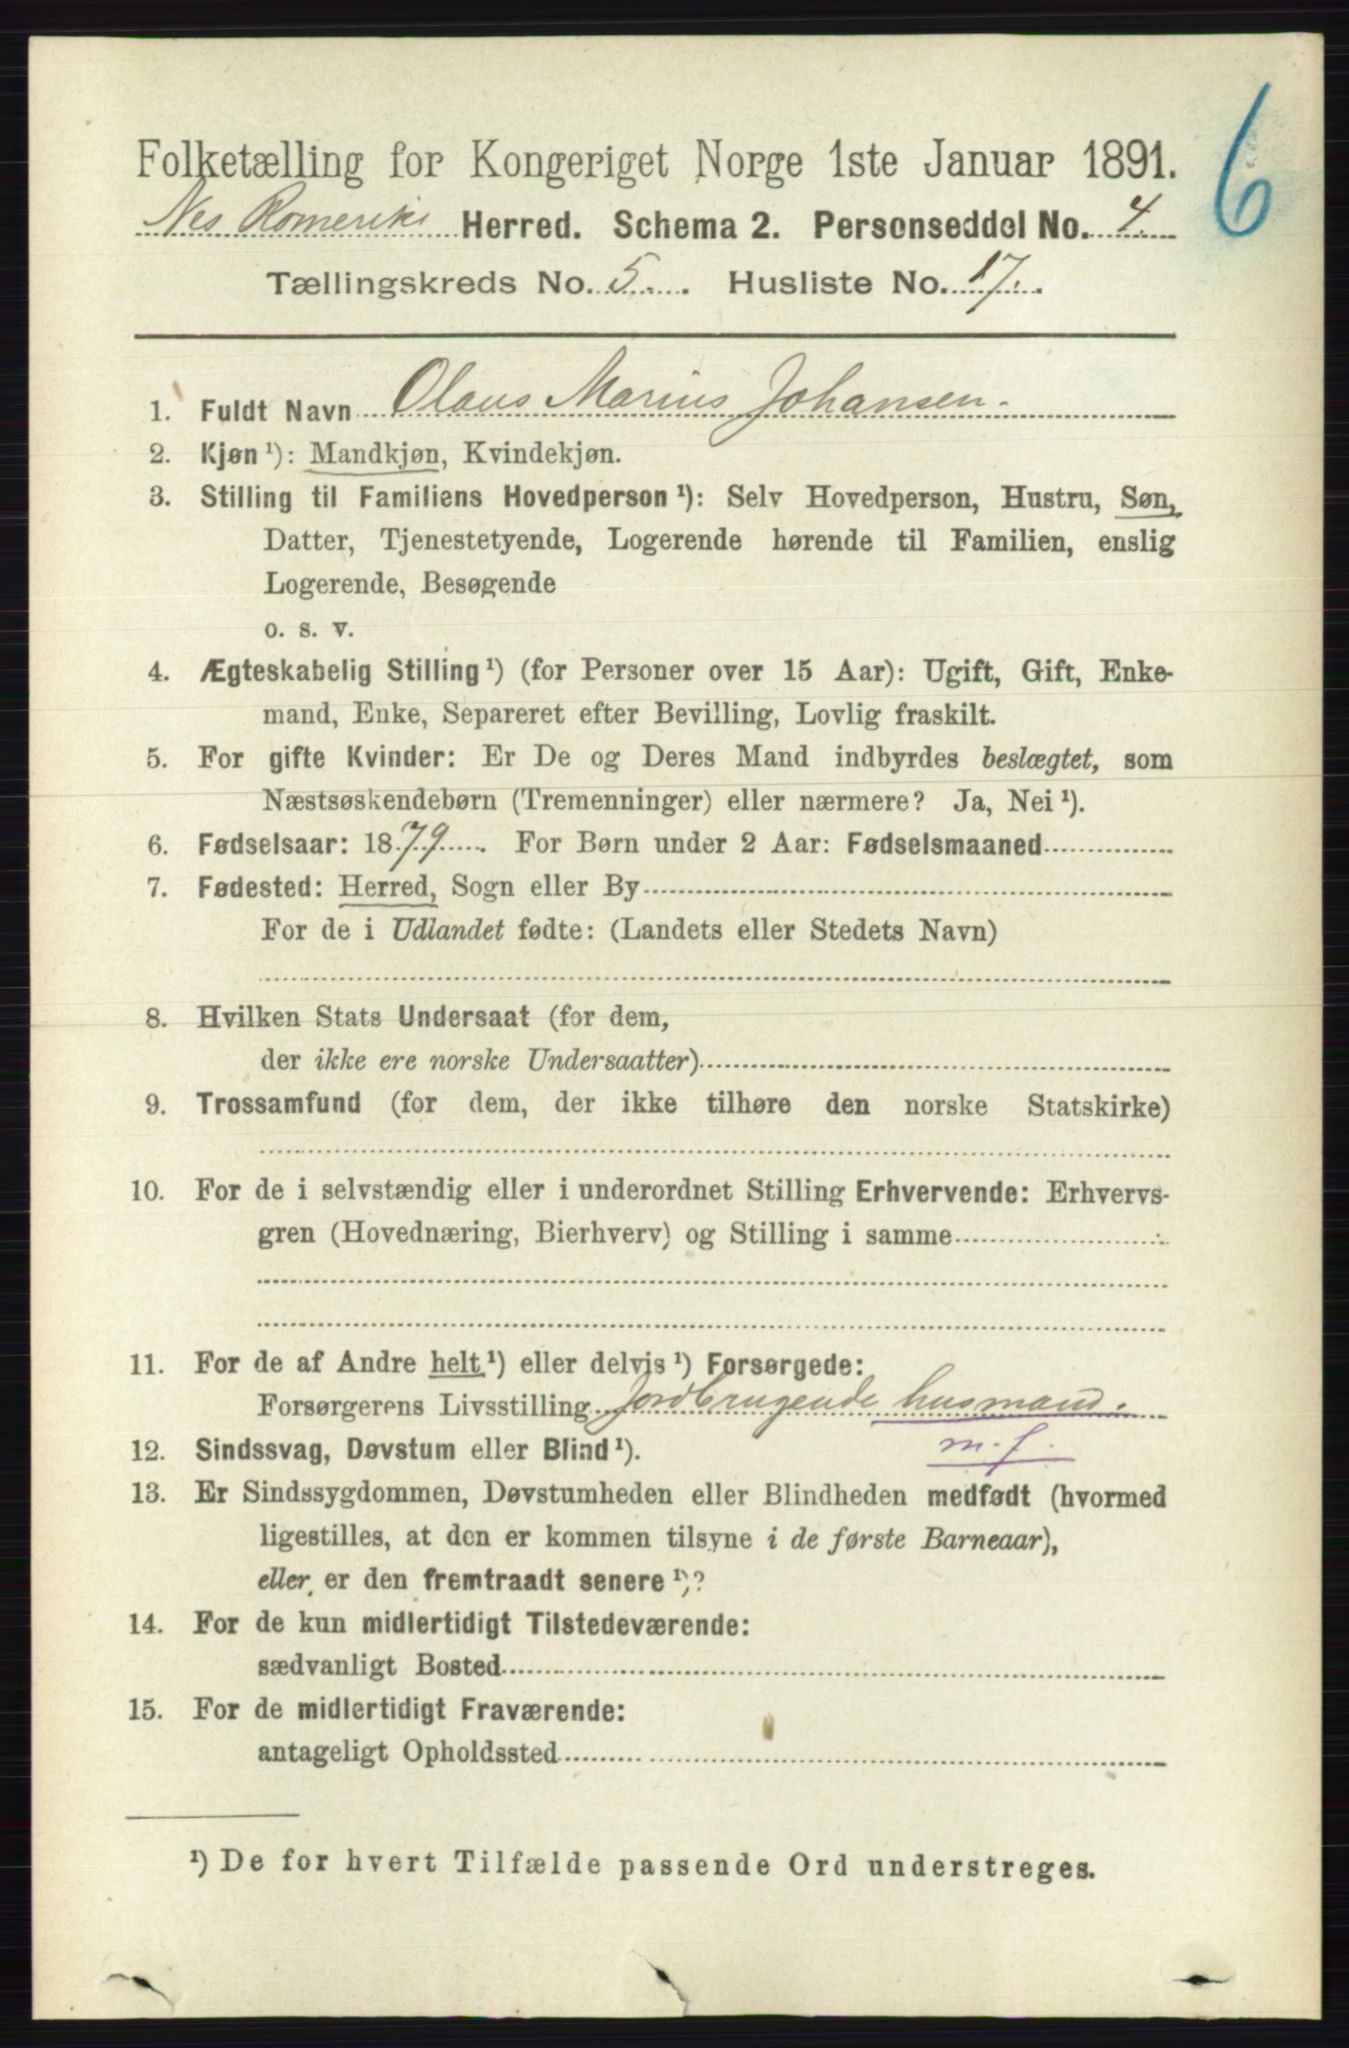 6
Folketælling for Kongeriget Norge 1ste Januar 1891.
Nes Romerike Herred. Schema 2. Personseddel No. 4.
Tællingskreds No. 5. Husliste No. 17.
1. Fuldt Navn Olaus Marius Johansen.
2. Kjøn ¹): Mandkjøn, Kvindekjøn.
3. Stilling til Familiens Hovedperson ¹): Selv Hovedperson, Hustru, Søn,
Datter, Tjenestetyende, Logerende hørende til Familien, enslig
Logerende, Besøgende
o. s. v.
4. Ægteskabelig Stilling ¹) (for Personer over 15 Aar): Ugift, Gift, Enke-
mand, Enke, Separeret efter Bevilling, Lovlig fraskilt.
5. For gifte Kvinder: Er De og Deres Mand indbyrdes beslægtet, som
Næstsøskendebørn (Tremenninger) eller nærmere? Ja, Nei ¹).
6. Fødselsaar: 1879. For Børn under 2 Aar: Fødselsmaaned
7. Fødested: Herred, Sogn eller By
For de i Udlandet fødte: (Landets eller Stedets Navn)
8. Hvilken Stats Undersaat (for dem,
der ikke ere norske Undersaatter)
9. Trossamfund (for dem, der ikke tilhøre den norske Statskirke)
10. For de i selvstændig eller i underordnet Stilling Erhvervende: Erhvervs-
gren (Hovednæring, Bierhverv) og Stilling i samme
11. For de af Andre helt ¹) eller delvis ¹) Forsørgede:
Forsørgerens Livsstilling Jordbrugende husmand.
12. Sindssvag, Døvstum eller Blind ¹). m. j.
13. Er Sindssygdommen, Døvstumheden eller Blindheden medfødt (hvormed
ligestilles, at den er kommen tilsyne i de første Barneaar),
eller er den fremtraadt senere ¹)?
14. For de kun midlertidigt Tilstedeværende:
sædvanligt Bosted
15. For de midlertidigt Fraværende:
antageligt Opholdssted
¹) De for hvert Tilfælde passende Ord understreges.